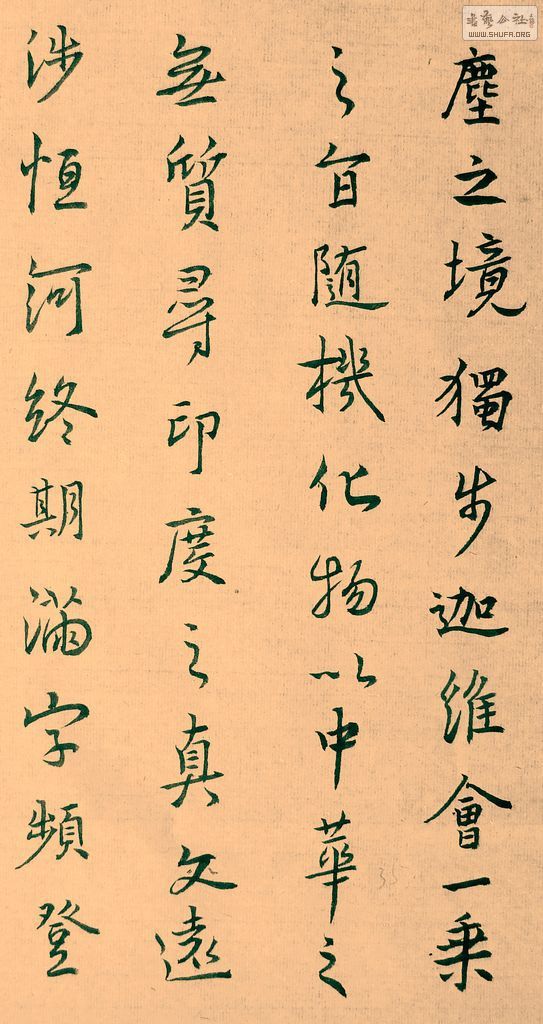 塵之境獨步迦維會一乗
之旨随機化物以中華之
無質尋印度之真文遠
涉恒河終期滿字頻登
書藝公社
WWW.SHUFA.ORG
35